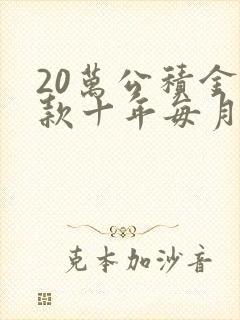 20萬公積金
款十年每月
克本加沙音